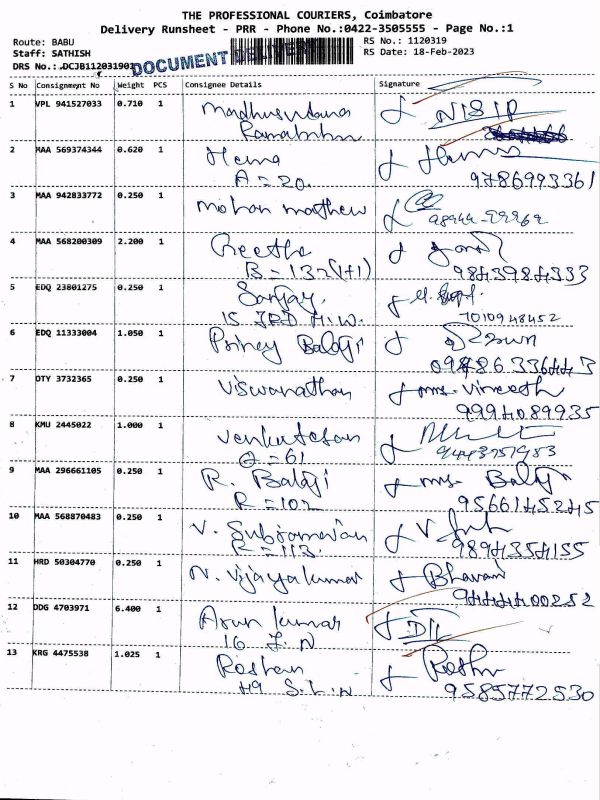 THE PROFESSIONAL COURIERS, Coimbatore
Delivery Runsheet - PRR - Phone No.:0422-3505555 - Page No.:1
Route: BABU
RS No.: 1120319
Staff: SATHISH
RS Date: 18-Feb-2023
DRS No.: DCJB112031901
DOCUMENT
S No Consignment No Weight PCS Consignee Details Signature
1 VPL 941527033 0.710 1
2 MAA 569374344 0.620 1 Hema
A = 20. 9786993361
3 MAA 942833772 0.250 1 Mohan mathew
4 MAA 568200309 2.200 1 Preethi
B = 132(1+1) 9843984333
5 EDQ 23801275 0.250 1 Sanjay.
7010948452
6 EDQ 11333004 1.050 1 Balaji
7 OTY 3732365 0.250 1 Viswanathan mrs. Vineeth
9994089935
8 KMU 2445022 1.000 1 Venkatesan
9443751953
9 MAA 296661105 0.250 1 R. Balaji mrs. Balaji
R = 102 9566145245
10 MAA 568870483 0.250 1 V.
R = 113. 9894354155
11 HRD 50304770 0.250 1 N. Vijayakumar Bhavani
9444400252
12 DDG 4703971 6.400 1 Arun kumar
16
13 KRG 4475538 1.025 1 Roshan
49 S.L.N 9585772530